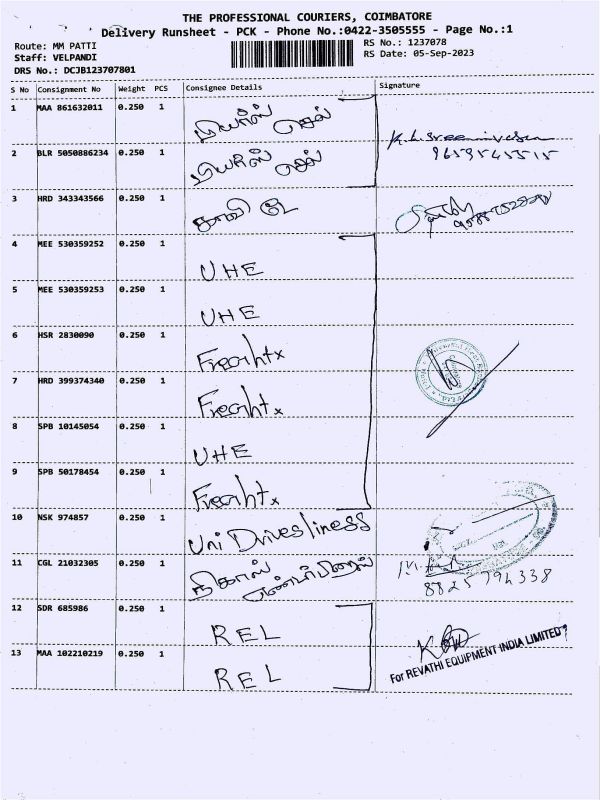 THE PROFESSIONAL COURIERS, COIMBATORE
Delivery Runsheet - PCK - Phone No.:0422-3505555 - Page No.:1
Route: MM PATTI
RS No.: 1237078
Staff: VELPANDI
RS Date: 05-Sep-2023
DRS No.: DCJB123707801
S No Consignment No Weight PCS Consignee Details Signature
1 MAA 861632011 0.250 1
2 BLR 5050886234 0.250 1
K.L. Sreenivasan
9659545515
3 HRD 343343566 0.250 1
4 MEE 530359252 0.250 1 UHE
5 MEE 530359253 0.250 1 UHE
6 HSR 2830090 0.250 1 Freaht x
7 HRD 399374340 0.250 1 Freaht x
8 SPB 10145054 0.250 1 UHE
9 SPB 50178454 0.250 1 Freaht x
10 NSK 974857 0.250 1 Uni Drives liness
11 CGL 21032305 0.250 1 8825794338
12 SDR 685986 0.250 1 REL
13 MAA 102210219 0.250 1 REL
For REVATHI EQUIPMENT INDIA LIMITED